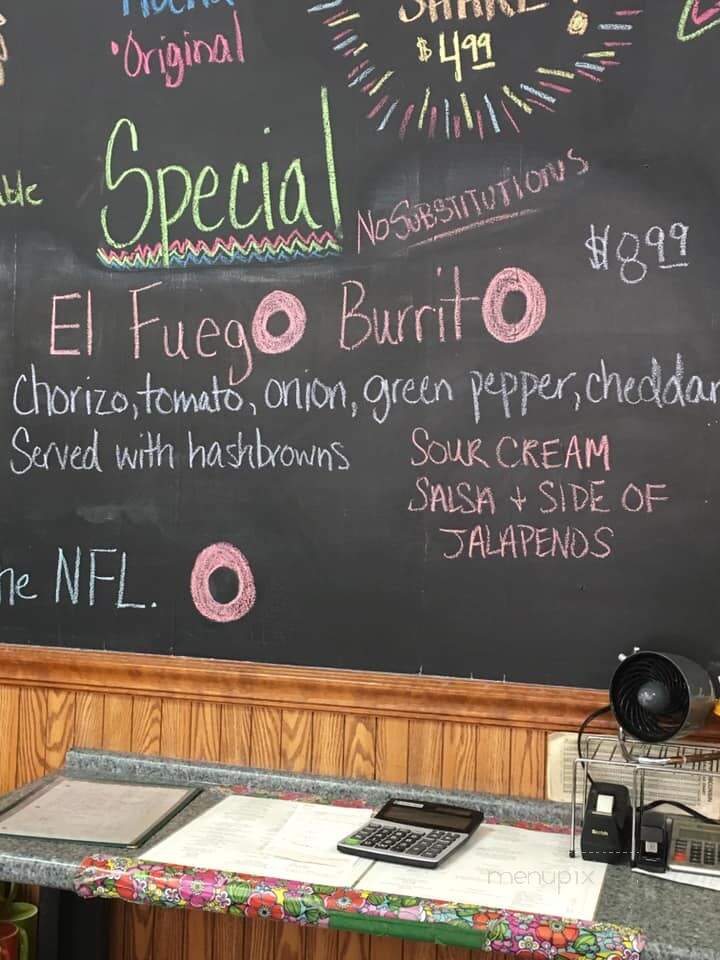 SHAKE!
•Original
$4.99
Special
NO SUBSTITUTIONS
$8.99
El Fuego Burrito
Chorizo, tomato, onion, green pepper, cheddar
Served with hashbrowns
SOUR CREAM
SALSA + SIDE OF
JALAPENOS
NFL.
menupix